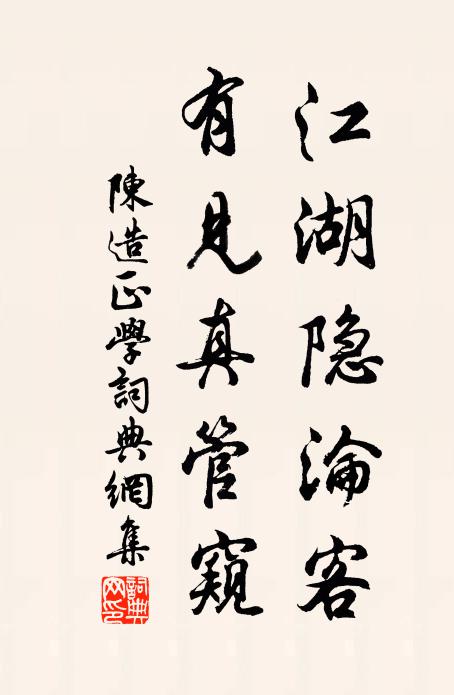 江湖隐淪客
有見真管窺
陳造正學詞典網集
詞典網印